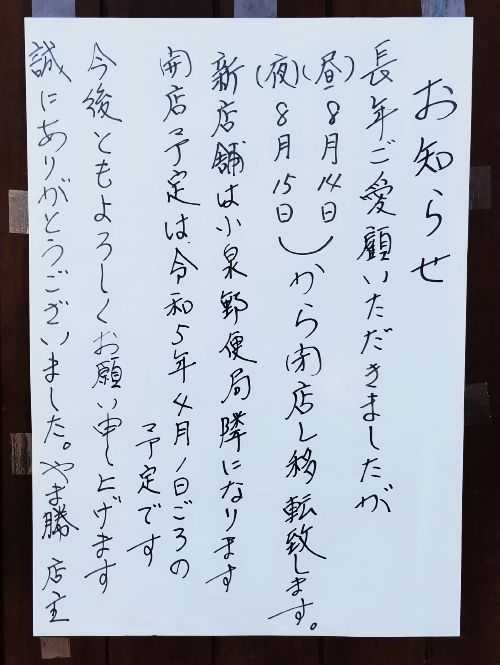 お知らせ
長年ご愛顧いただきましたが
(昼)8月14日
(夜)8月15日
から閉店し移転致します。
新店舗は小泉郵便局隣になります
開店予定は令和5年4月1日ごろの
予定です
今後ともよろしくお願い申し上げます
誠にありがとうございました。やま勝 店主